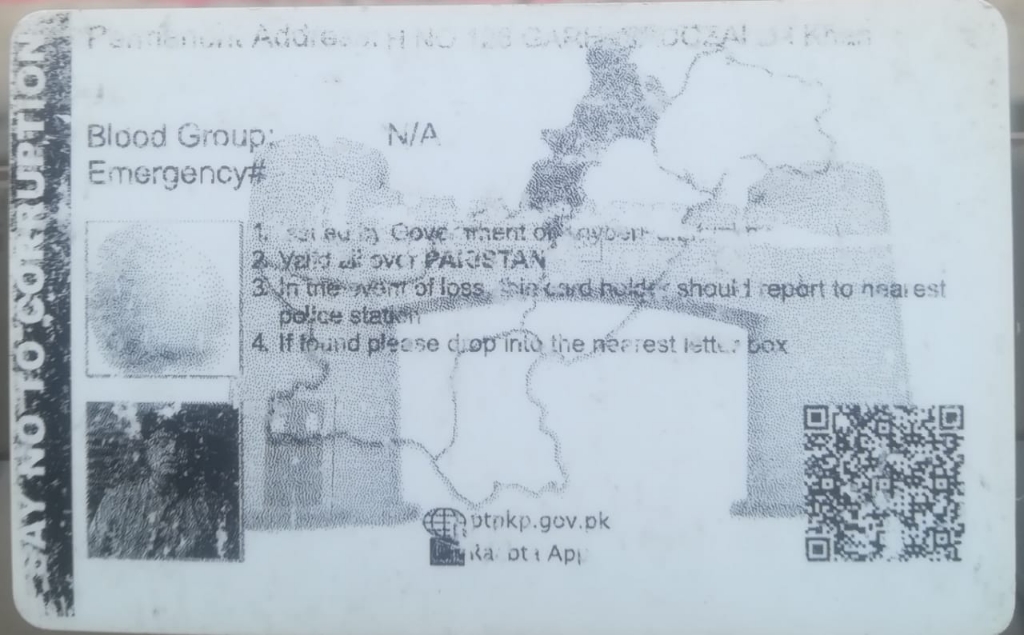 SAY NO TO CORRUPTION
Permanent Address: H NO 128 GARH Khan
Blood Group: N/A
Emergency#
1. Government of
2. Valid all over PAKISTAN
3. In the event of loss, this card holder should report to nearest
police station
4. If found please drop into the nearest letter box
ptpkp.gov.pk
App